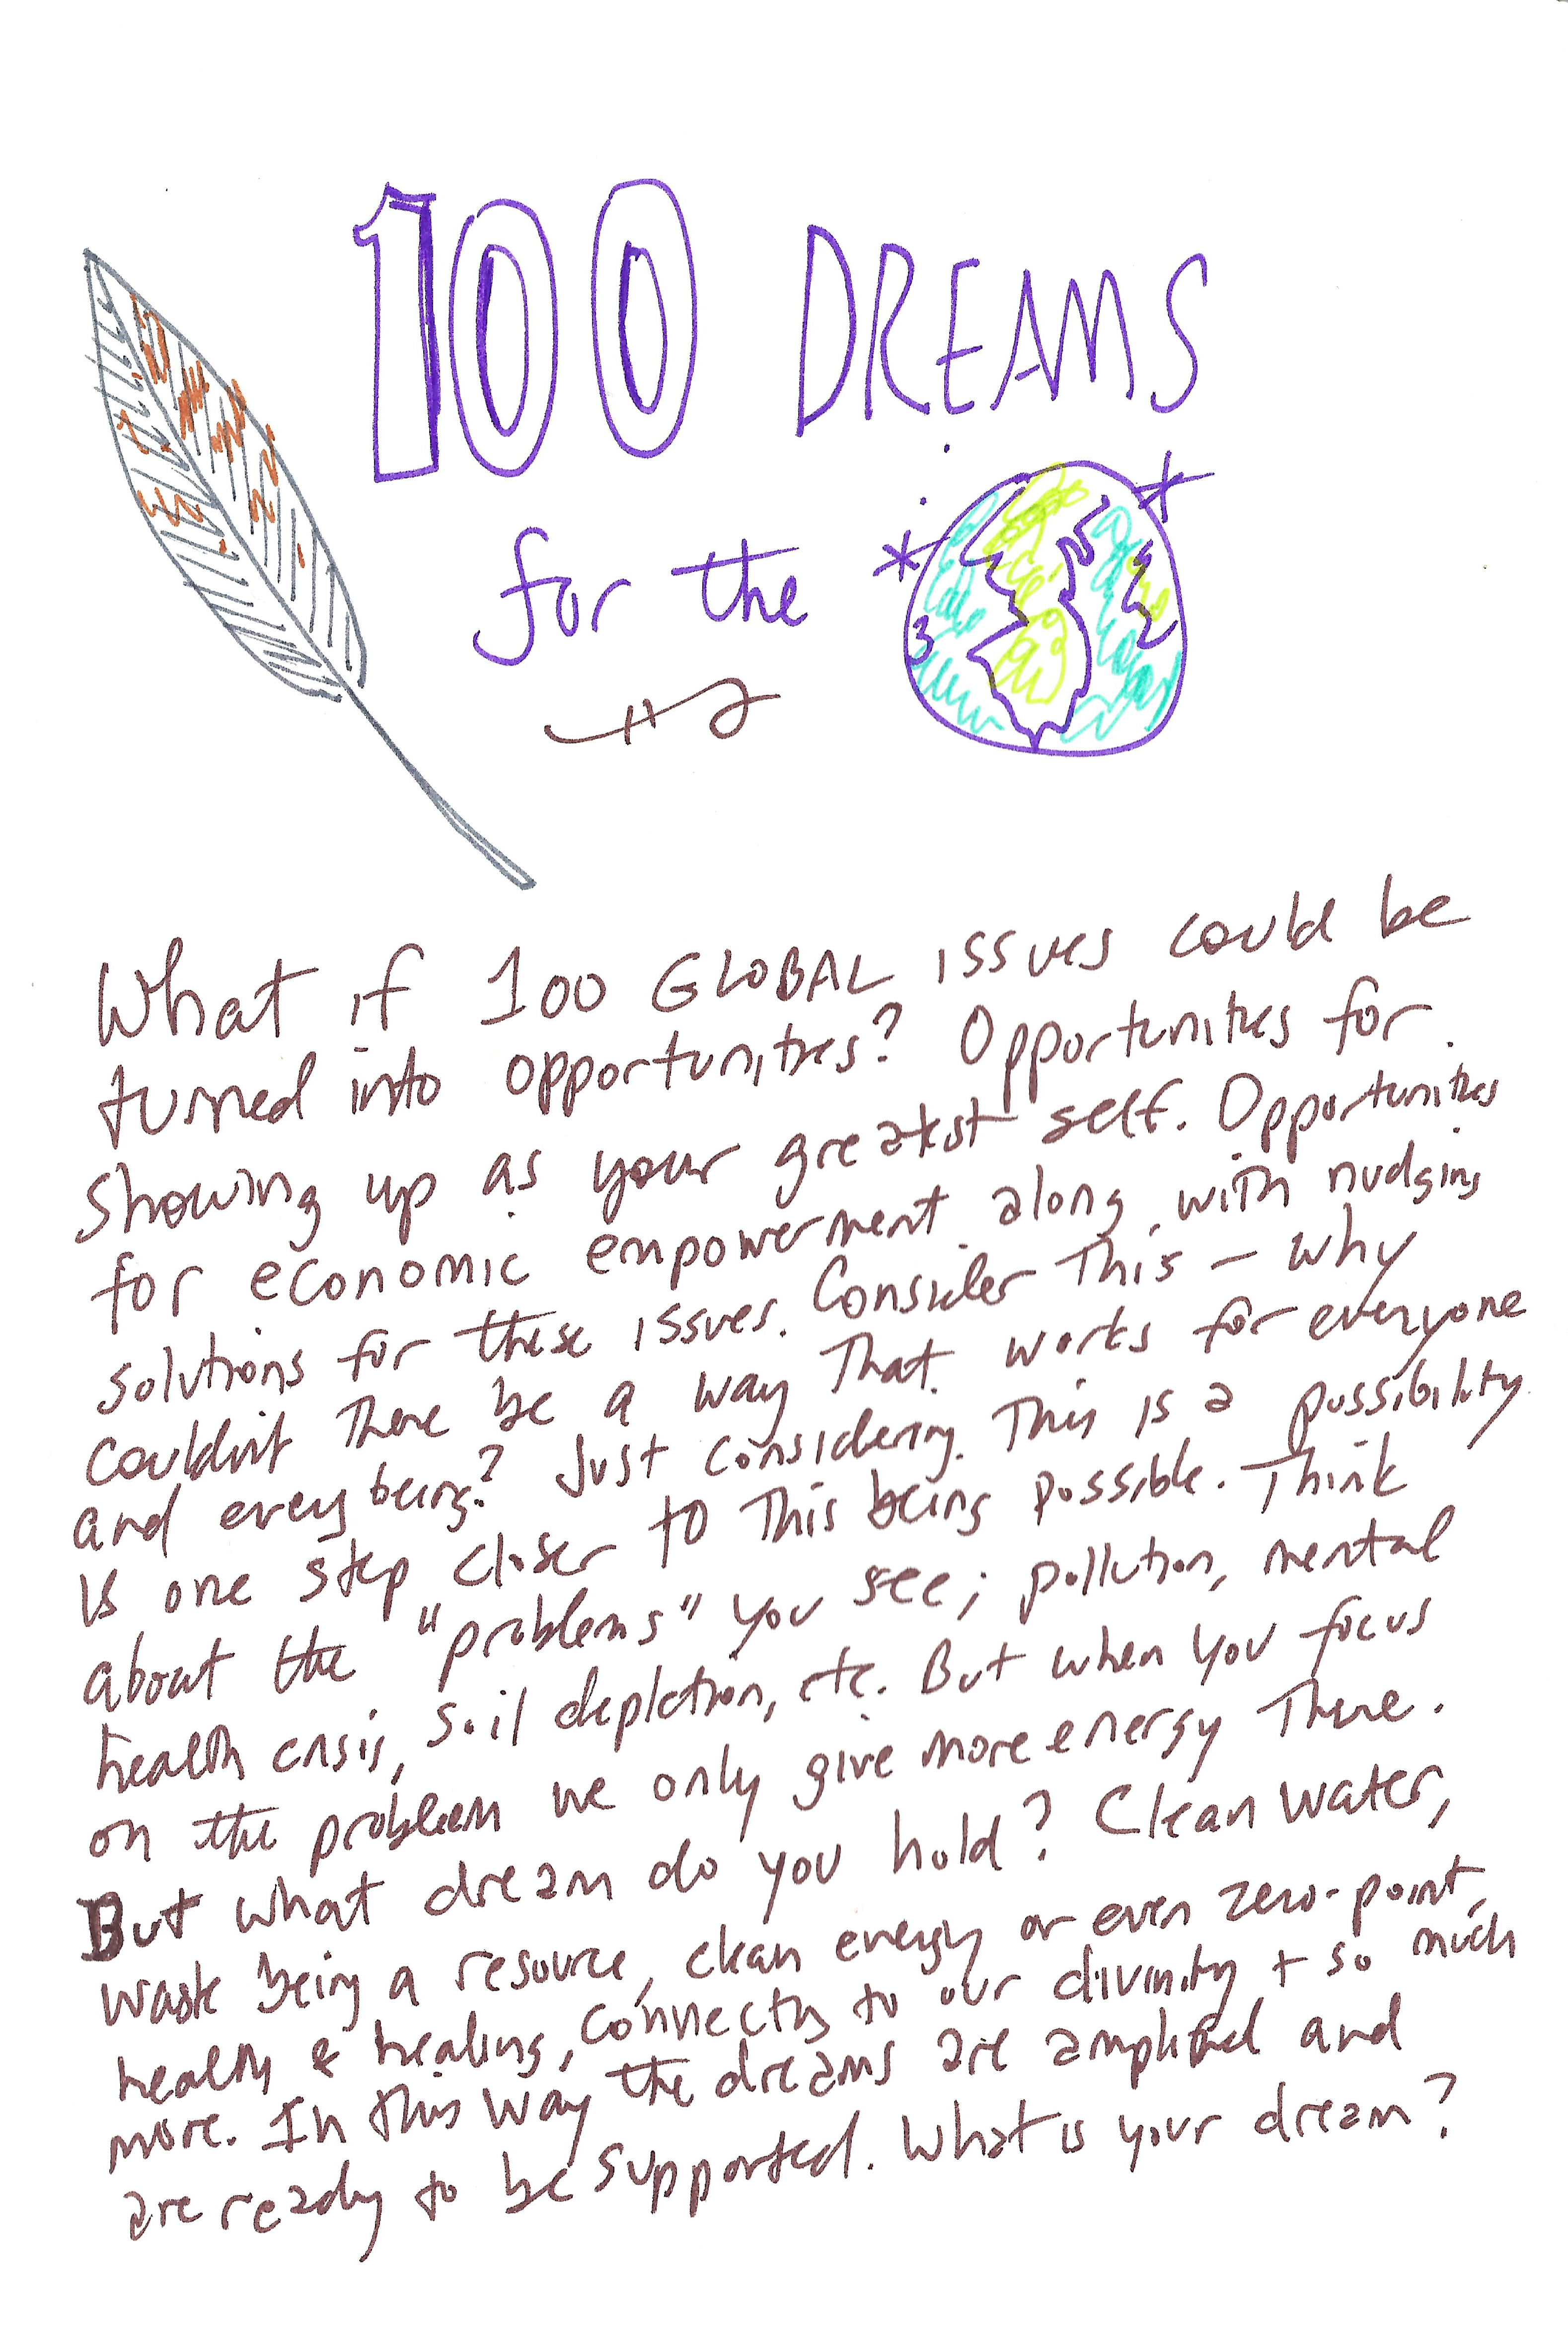 100 DREAMS
for the
What if 100 GLOBAL issues could be
turned into opportunities? Opportunities for
showing up as your greatest self. Opportunities
for economic empowerment along with nudging
solutions for these issues. Consider This - why
couldn't There be a way That works for everyone
and every being? Just considering This is a possibility
is one step closer to This being possible. Think
about the "problems" you see; pollution, mental
health crisis, soil depletion, etc. But when you focus
on the problem we only give more energy There.
But what dream do you hold? Clean water,
waste being a resource, clean energy or even zero-point,
health & healing, connecting to our divinity + so much
more. In this way the dreams are amplified and
are ready to be supported. What is your dream?